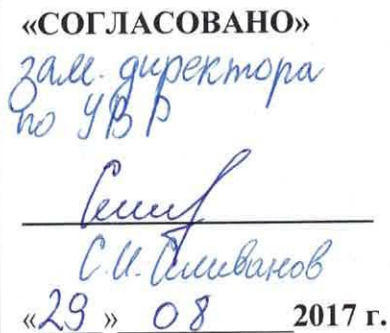 «СОГЛАСОВАНО»
зам. директора
по УВР
С.И. Селиванов
«29» 08 2017 г.